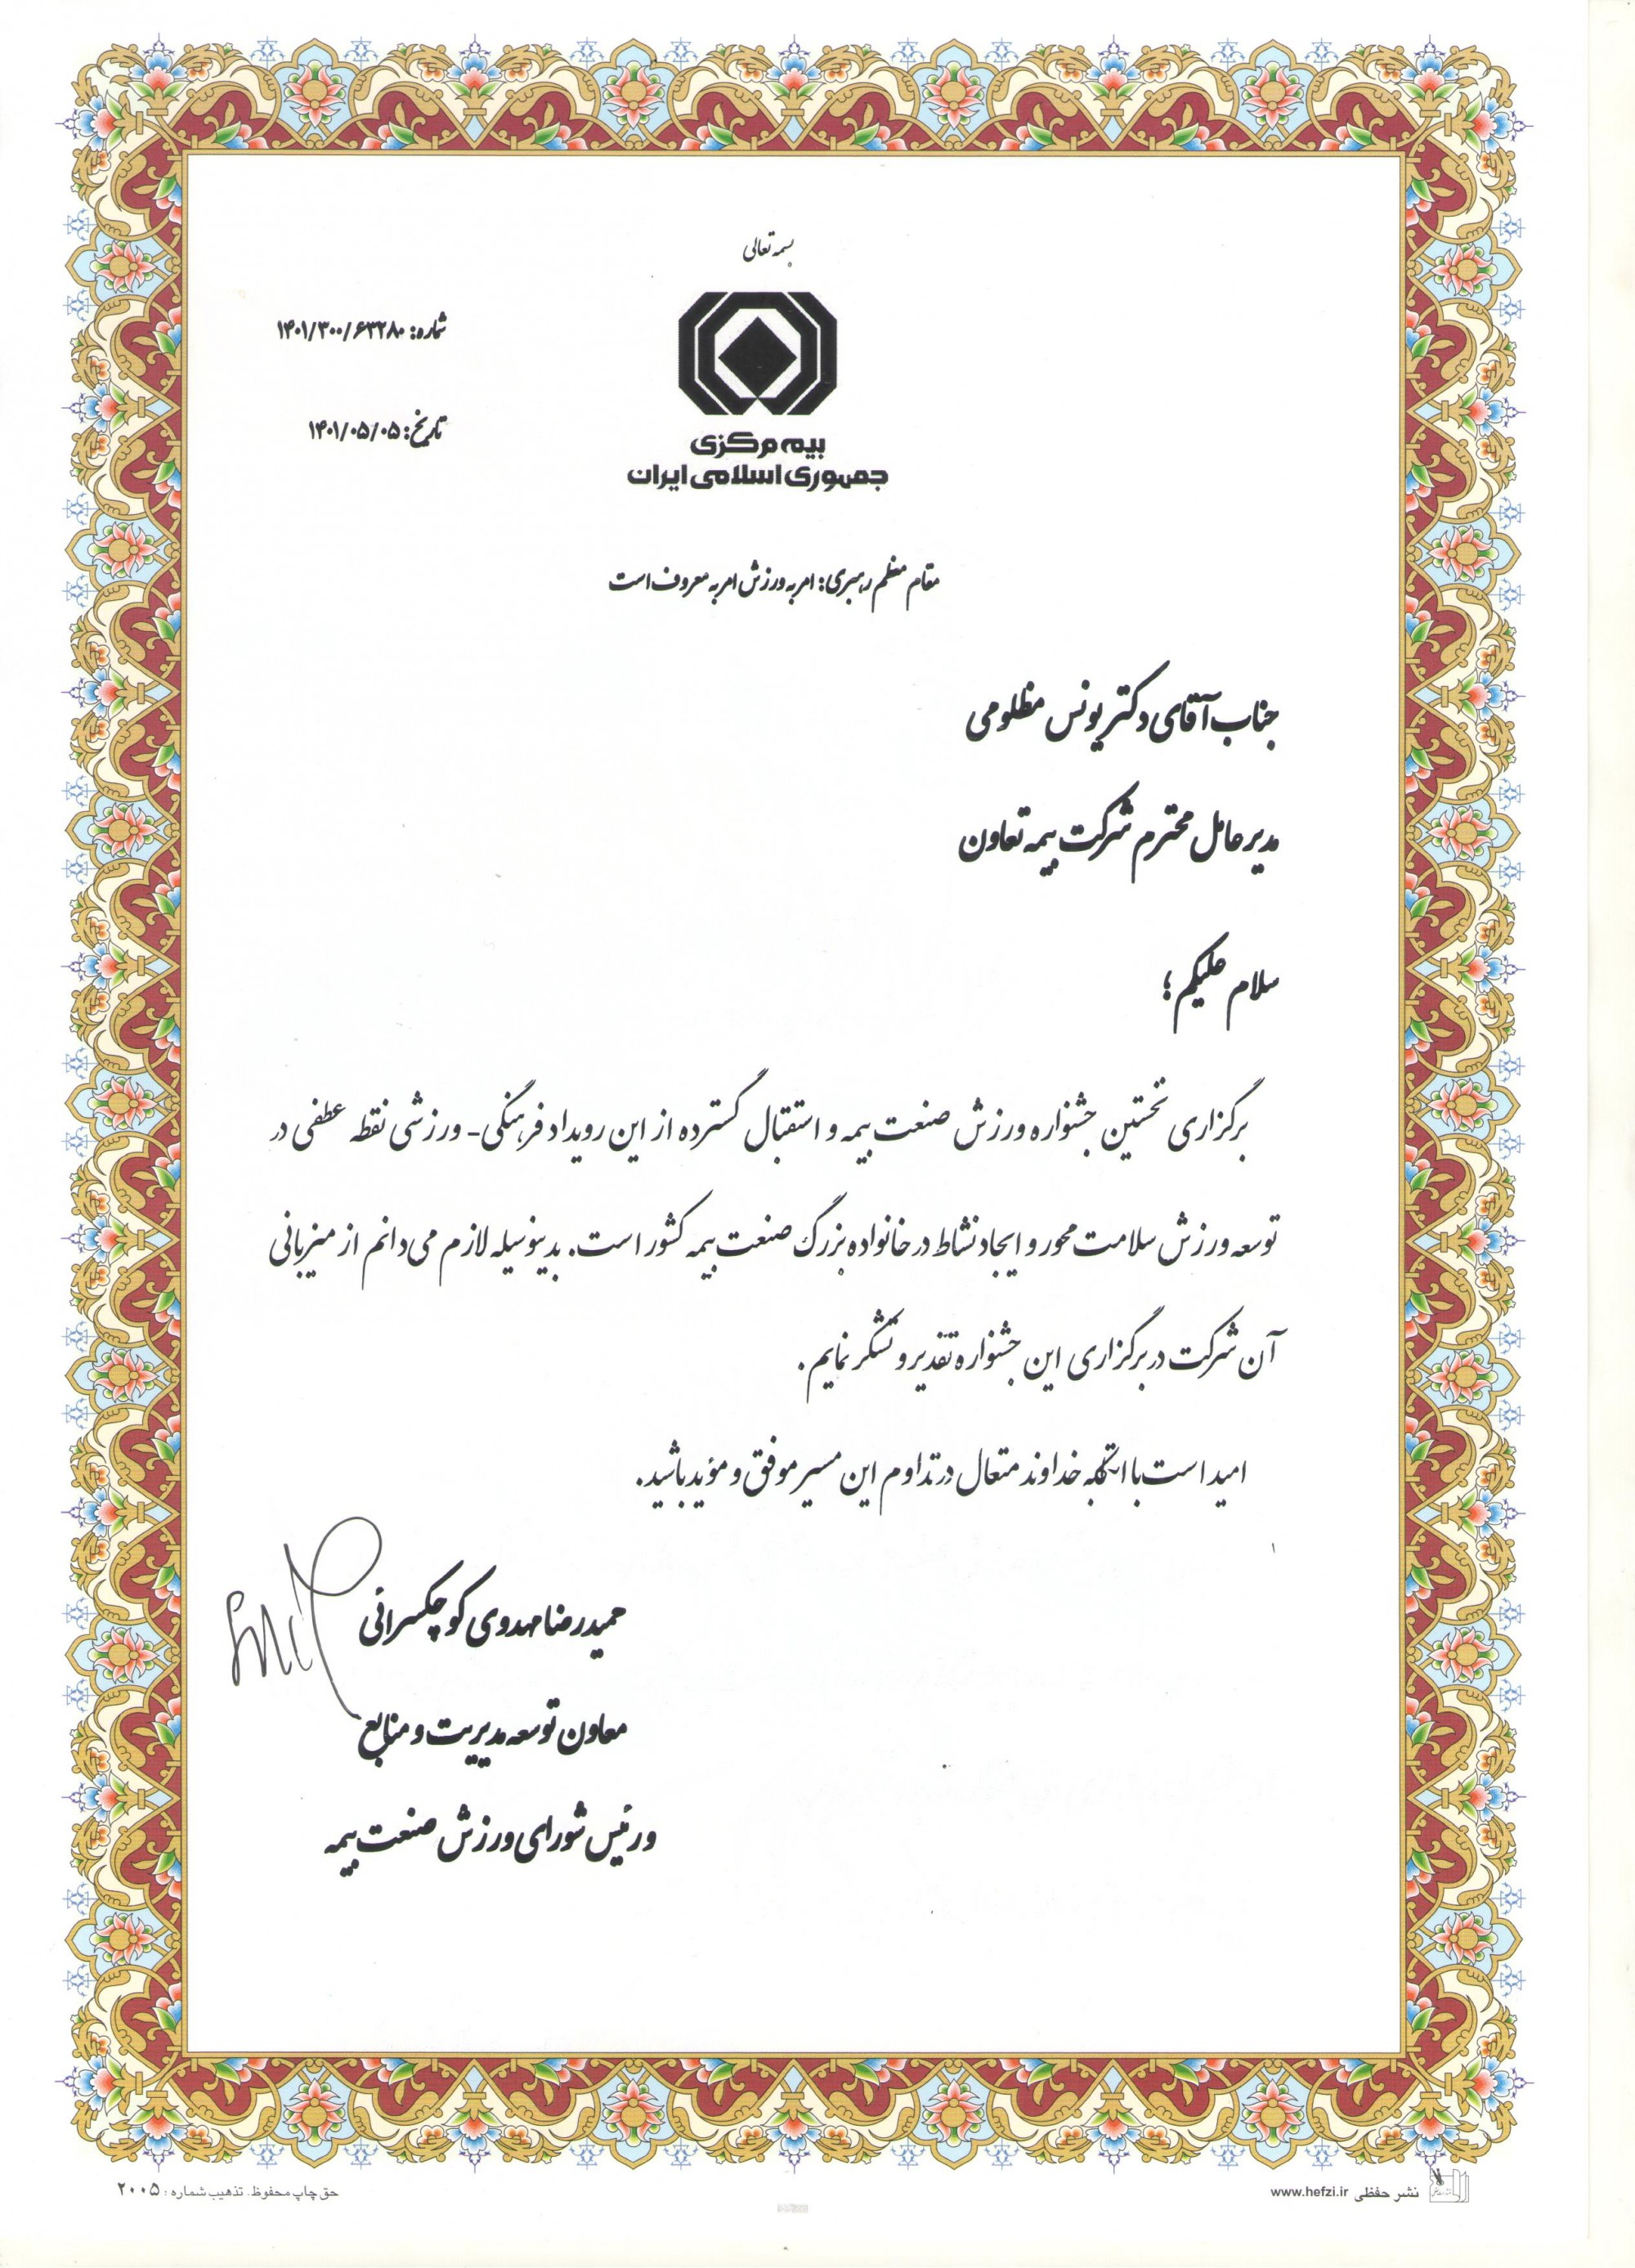 بسمه تعالی
شماره: ۱۴۰۱/۳۰۰/۶۳۲۸۰
تاریخ: ۱۴۰۱/۰۵/۰۵
بیمه مرکزی
جمهوری اسلامی ایران
مقام معظم رهبری: امر به ورزش امر به معروف است
جناب آقای دکتر یونس مظلومی
مدیر عامل محترم شرکت بیمه تعاون
سلام علیکم؛
برگزاری نخستین جشنواره ورزش صنعت بیمه و استقبال گسترده از این رویداد فرهنگی- ورزشی نقطه عطفی در
توسعه ورزش سلامت محور و ایجاد نشاط در خانواده بزرگ صنعت بیمه کشور است. بدینوسیله لازم می دانم از میزبانی
آن شرکت در برگزاری این جشنواره تقدیر و تشکر نمایم.
امید است با اتکا به خداوند متعال در تداوم این مسیر موفق و مؤید باشید.
حمیدرضا مهدوی کوچکسرائی
معاون توسعه مدیریت و منابع
و رئیس شورای ورزش صنعت بیمه
نشر حفظی www.hefzi.ir
حق چاپ محفوظ. تذهیب شماره: ۲۰۰۵